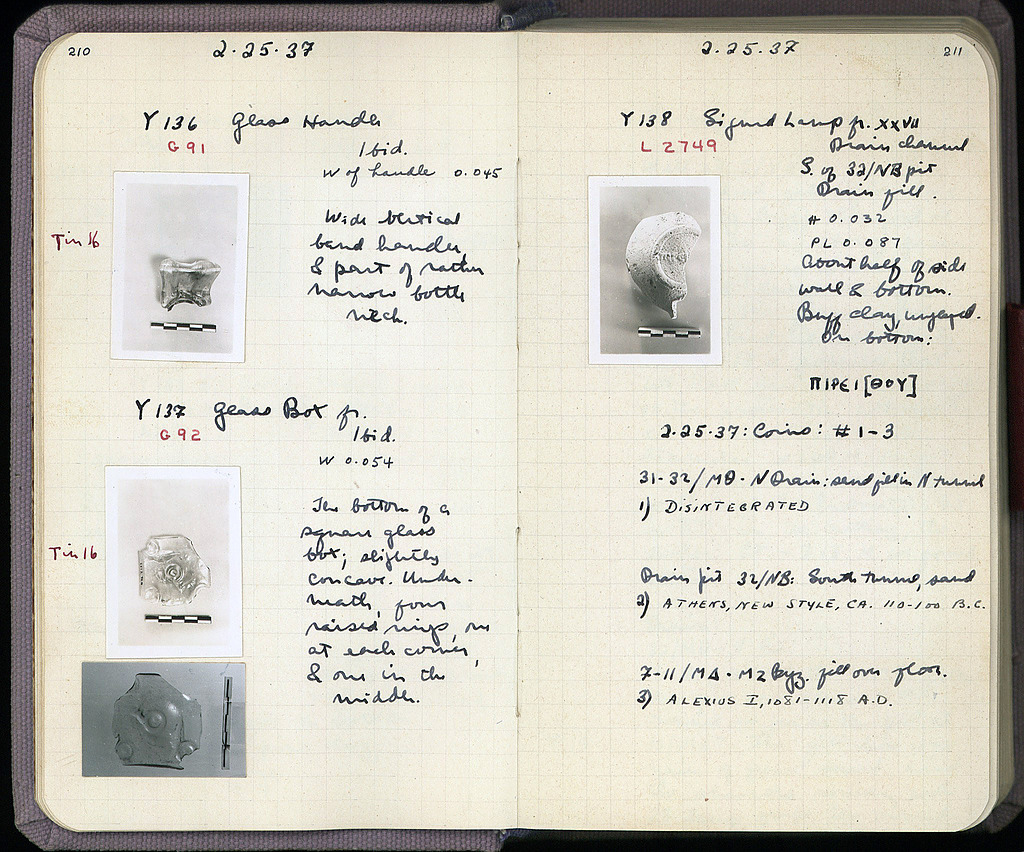 210
2·25·37
Y 136 Glass Handle
G 91
Ibid.
W of handle 0.045
Tin 16
Wide vertical
band handle,
& part of rather
narrow bottle
neck.
Y 137 Glass Box fr.
G 92
Ibid.
W 0.054
Tin 16
The bottom of a
square glass
box; slightly
concave. Under-
neath, four
raised rings, one
at each corner,
& one in the
middle.
2·25·37
211
Y 138 Signed Lamp fr. XXVII
L 2749
Drain channel
S. of 32/NB pit
Drain fill.
H 0.032
PL 0.087
About half of side
wall & bottom.
Buff clay, unglazed.
On bottom:
ΠΙΡΕΙ[ΘΟΥ]
2·25·37: Coins: #1-3
31-32/ΜΘ· N Drain: sand fill in N tunnel
1) DISINTEGRATED
Drain pit 32/NB: South tunnel, sand
2) ATHENS, NEW STYLE, CA. 110-100 B.C.
7-11/ΜΔ·MZ Byz. fill over floor.
3) ALEXIUS I, 1081-1118 A.D.